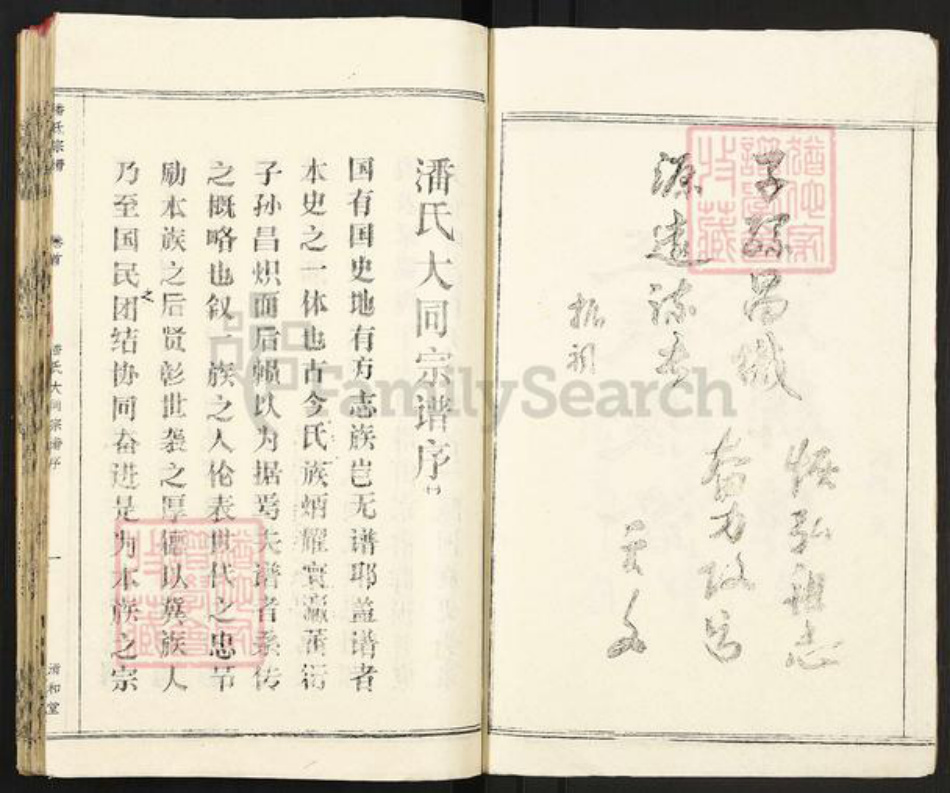 子孙昌炽
源远流长
振祖
恢弘祖志
奋力改
天
潘氏大同宗谱序
国有国史地有方志族岂无谱耶盖谱者
本史之一体也古今氏族炳耀寰瀛蕃衍
子孙昌炽而后赖以为据焉夫谱者系传
之概略也叙一族之人伦表世代之忠节
励本族之后贤彰世袭之厚德以冀族人
乃至国民之团结协同奋进是为本族之宗
潘氏宗谱
卷首
潘氏大同宗谱序
一
清和堂
犹他家谱学会收藏
犹他家谱学会收藏
FamilySearch